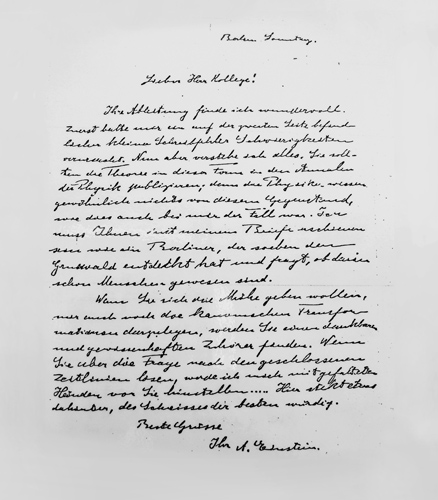 Berlin Sonntag.
Lieber Herr Kollege!
Ihre Ableitung finde ich wundervoll.
Zuerst hatte mir ein auf der zweiten Seite befind-
licher kleiner Schreibfehler Schwierigkeiten
verursacht. Nun aber verstehe ich alles. Sie soll-
ten die Theorie in dieser Form in den Annalen
der Physik publizieren, denn die Physiker wissen
gewöhnlich nichts von diesem Gegenstand,
wie dies auch bei mir der Fall war. Ich
muss Ihnen mit meinem Briefe
sein wie ein Berliner, der soeben den
Grunewald entdeckt hat und fragt, ob darin
schon Menschen gewesen sind.
Wenn Sie sich die Mühe geben wollen,
mir auch noch die kanonischen Transfor-
mationen darzulegen, werden Sie einen dankbaren
und gewissenhaften Zuhörer finden. Wenn
Sie aber die Frage nach den geschlossenen
Zeitlinien lösen, werde ich mich mit gefalteten
Händen vor Sie hinstellen.... Hier steckt etwas
dahinter, des Schweisses der Besten würdig.
Beste Grüsse
Ihr A. Einstein.